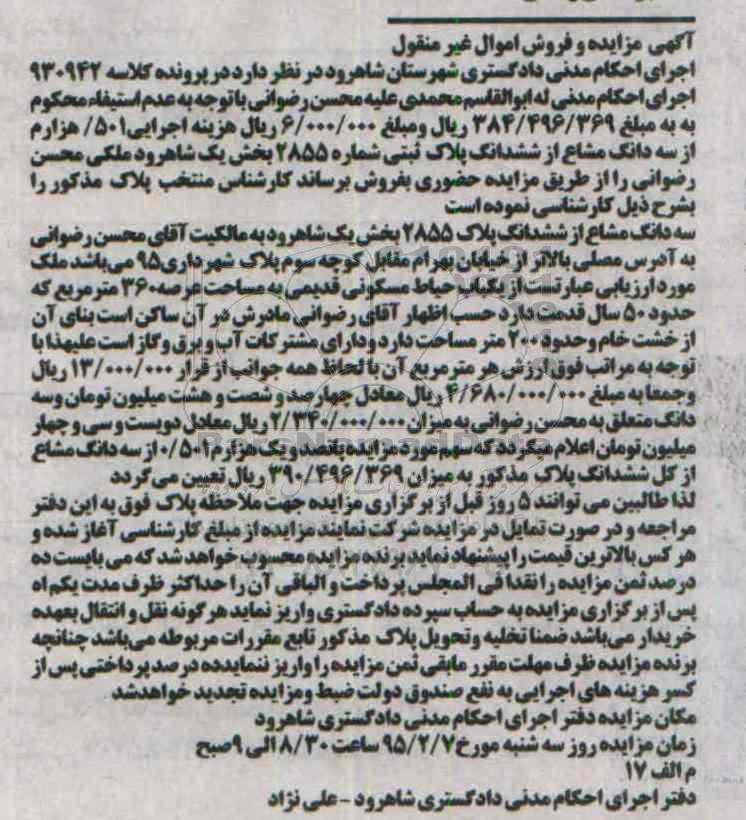 آگهی مزایده و فروش اموال غیر منقول
اجرای احکام مدنی دادگستری شهرستان شاهرود در نظر دارد در پرونده کلاسه ۹۳۰۹۴۲
اجرای احکام مدنی له ابوالقاسم محمدی علیه محسن رضوانی با توجه به عدم استیفاء محکوم
به به مبلغ ۳۸۴/۴۹۶/۳۶۹ ریال ومبلغ ۶/۰۰۰/۰۰۰ ریال هزینه اجرایی۵۰۱/ هزارم
از سه دانگ مشاع از ششدانگ پلاک ثبتی شماره ۲۸۵۵ بخش یک شاهرود ملکی محسن
رضوانی را از طریق مزایده حضوری بفروش برساند کارشناس منتخب پلاک مذکور را
بشرح ذیل کارشناسی نموده است
سه دانگ مشاع از ششدانگ پلاک ۲۸۵۵ بخش یک شاهرود به مالکیت آقای محسن رضوانی
به آدرس مصلی بالاتر از خیابان بهرام مقابل کوچه سوم پلاک شهرداری۹۵ می باشد ملک
مورد ارزیابی عبارتست از یکباب حیاط مسکونی قدیمی به مساحت عرصه ۳۶۰ متر مربع که
حدود ۵۰ سال قدمت دارد حسب اظهار آقای رضوانی مادرش در آن ساکن است بنای آن
از خشت خام وحدود ۲۰۰ متر مساحت دارد ودارای مشترکات آب و برق وگاز است علیهذا با
توجه به مراتب فوق ارزش هر متر مربع آن با لحاظ همه جوانب از قرار ۱۳/۰۰۰/۰۰۰ ریال
وجمعا به مبلغ ۴/۶۸۰/۰۰۰/۰۰۰ ریال معادل چهارصد و شصت و هشت میلیون تومان وسه
دانگ متعلق به محسن رضوانی به میزان ۲/۳۴۰/۰۰۰/۰۰۰ ریال معادل دویست و سی و چهار
میلیون تومان اعلام میگردد که سهم مورد مزایده پانصد و یک هزارم ۰/۵۰۱ از سه دانگ مشاع
از کل ششدانگ پلاک مذکور به میزان ۳۹۰/۴۹۶/۳۶۹ ریال تعیین می گردد
لذا طالبین می توانند ۵ روز قبل از برگزاری مزایده جهت ملاحظه پلاک فوق به این دفتر
مراجعه و در صورت تمایل در مزایده شرکت نمایند مزایده از مبلغ کارشناسی آغاز شده و
هر کس بالاترین قیمت را پیشنهاد نماید برنده مزایده محسوب خواهد شد که می بایست ده
درصد ثمن مزایده را نقدا فی المجلس پرداخت و الباقی آن را حداکثر ظرف مدت یکم اه
پس از برگزاری مزایده به حساب سپرده دادگستری واریز نماید هر گونه نقل و انتقال بعهده
خریدار می باشد ضمنا تخلیه وتحویل پلاک مذکور تابع مقررات مربوطه می باشد چنانچه
برنده مزایده ظرف مهلت مقرر مابقی ثمن مزایده را واریز ننمایدده درصد پرداختی پس از
کسر هزینه های اجرایی به نفع صندوق دولت ضبط و مزایده تجدید خواهدشد
مکان مزایده دفتر اجرای احکام مدنی دادگستری شاهرود
زمان مزایده روز سه شنبه مورخ ۹۵/۲/۷ ساعت ۸/۳۰ الی ۹صبح
م الف ۱۷
دفتر اجرای احکام مدنی دادگستری شاهرود - علی نژاد